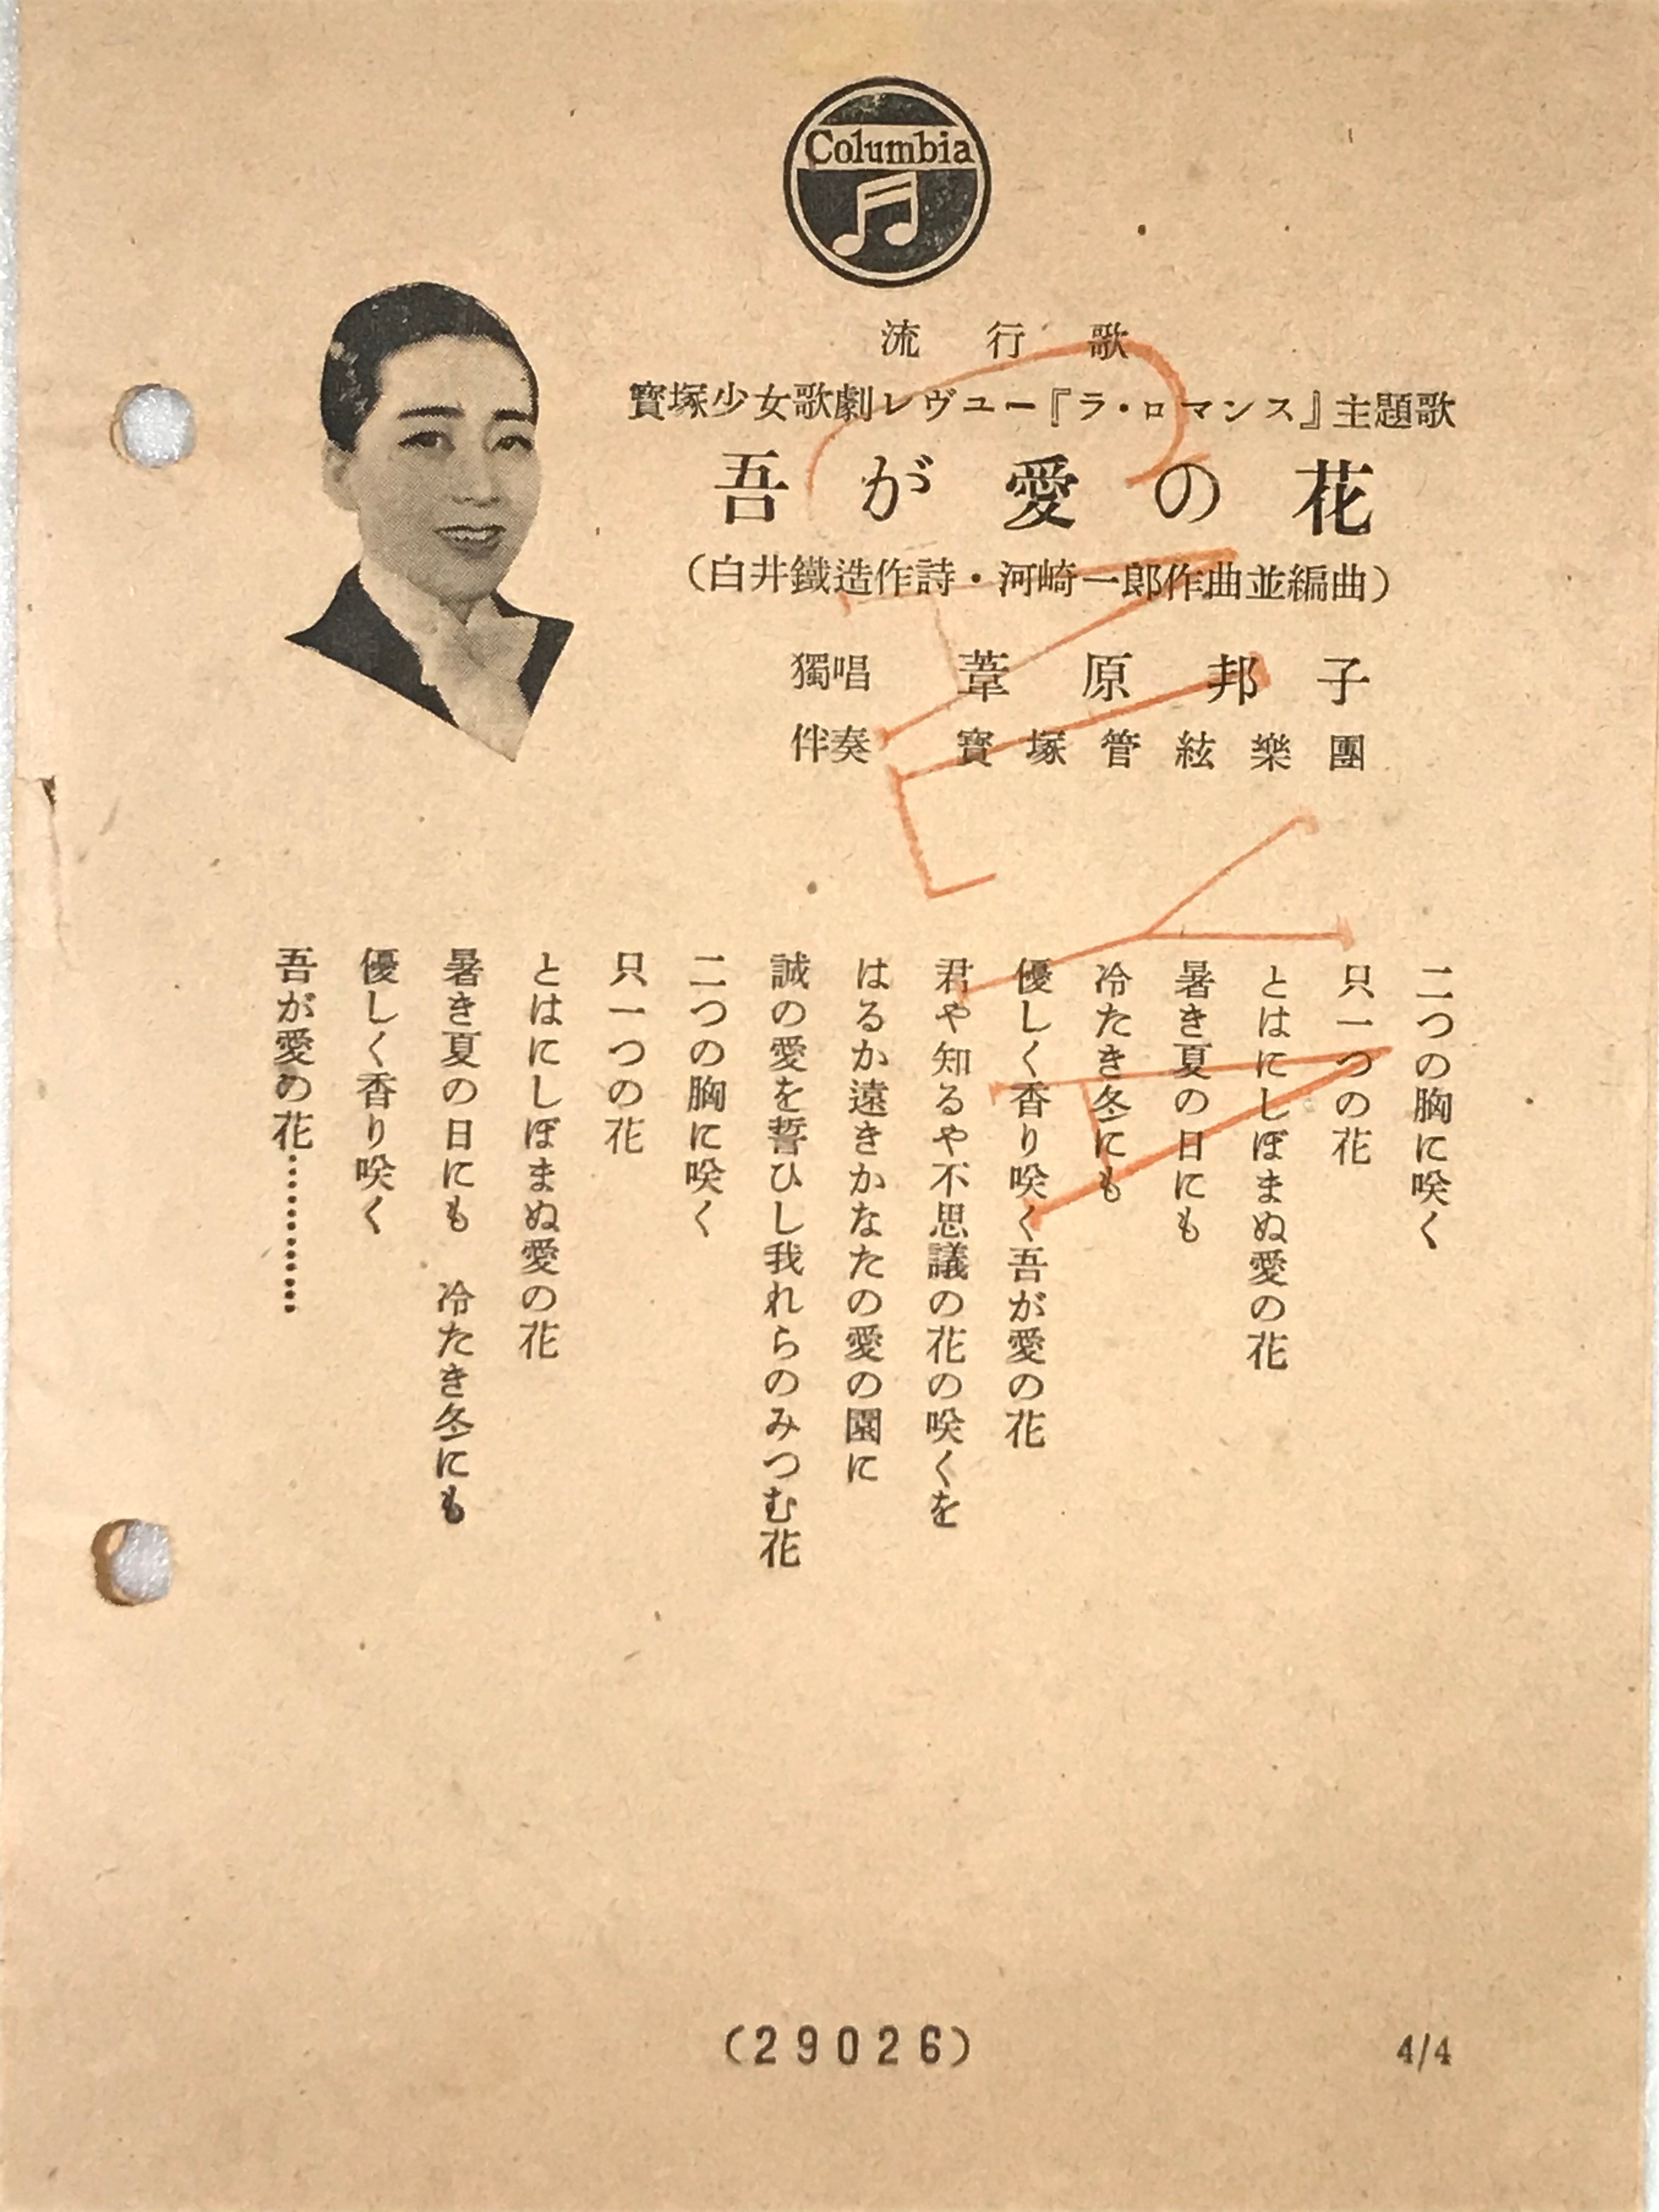 Columbia
流行歌
寶塚少女歌劇レヴユー『ラ・ロマンス』主題歌
吾が愛の花
(白井鐵造作詩・河崎一郎作曲並編曲)
獨唱 葦原邦子
伴奏 寶塚管絃樂團
二つの胸に咲く
只一つの花
とはにしぼまぬ愛の花
暑き夏の日にも
冷たき冬にも
優しく香り咲く吾が愛の花
君や知るや不思議の花の咲くを
はるか遠きかなたの愛の園に
誠の愛を誓ひし我れらのみつむ花
二つの胸に咲く
只一つの花
とはにしぼまぬ愛の花
暑き夏の日にも 冷たき冬にも
優しく香り咲く
吾が愛の花…………
(29026)
4/4